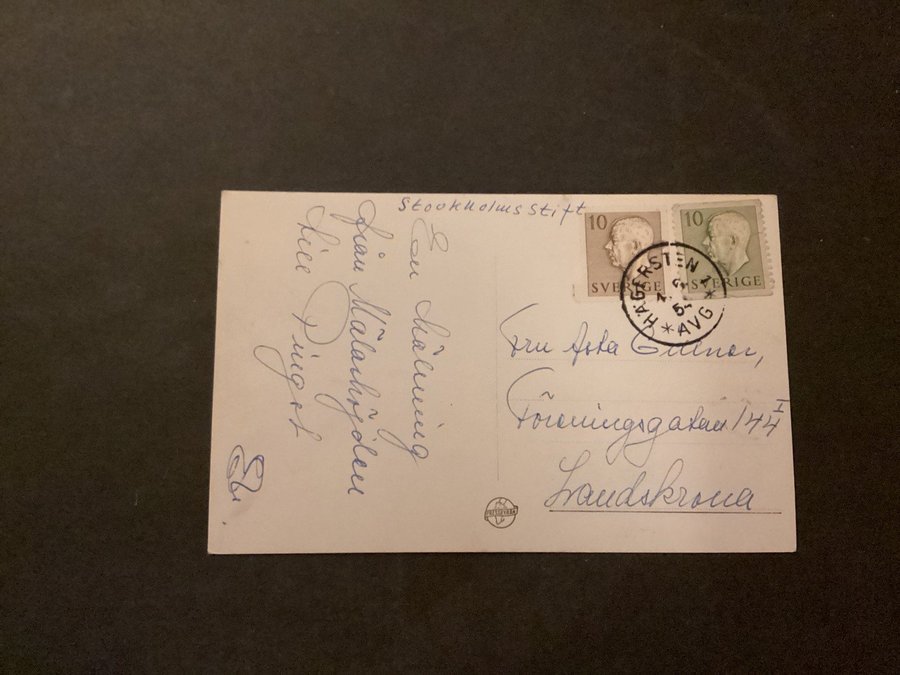 Stockholms Stift
En hälsning
från Mälarhöjden
till Pingst
10
SVERIGE
10
SVERIGE
HÄGERSTEN 1
AVG
Fru Asta
Föreningsgatan 144 I
Landskrona